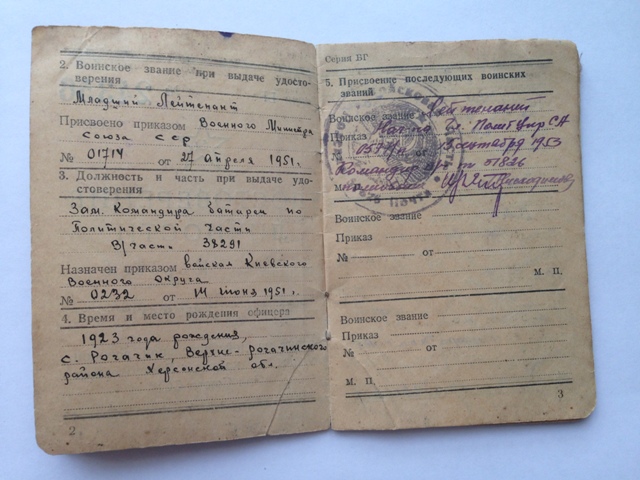 2. Воинское звание при выдаче удосто-
верения
Младший Лейтенант
Присвоено приказом Военного Министра
Союза ССР
№ 01714 от 27 апреля 1951 г.
3. Должность и часть при выдаче удо-
стоверения
Зам. Командира батареи по
Политической части
В/части 38291
Назначен приказом войскам Киевского
Военного округа
№ 0232 от 14 июня 1951 г.
4. Время и место рождения офицера
1923 года рождения,
с. Рогачик, Верхне-Рогачикского
района Херсонской обл.
2
Серия ВГ
5. Присвоение последующих воинских
званий
Воинское звание Лейтенант
Приказ
№ от сентября 1953
Командир
М. П.
Воинское звание
Приказ
№ от
М. П.
Воинское звание
Приказ
№ от
М. П.
3